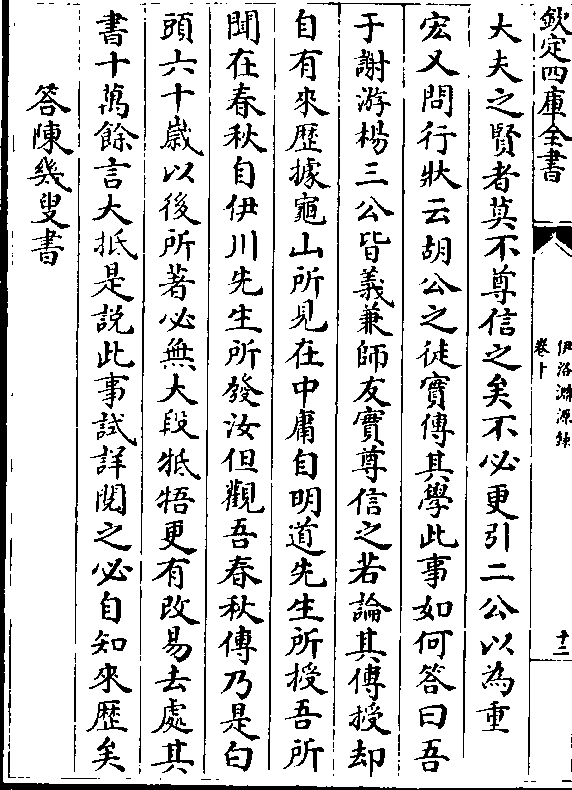 欽定四庫全書
伊洛淵源録
卷十
十二
大夫之賢者莫不尊信之矣不必更引二公以為重
宏又問行狀云胡公之徒實傳其學此事如何答曰吾
于謝游楊三公皆義兼師友實尊信之若論其傳授却
自有來歷據龜山所見在中庸自明道先生所授吾所
聞在春秋自伊川先生所發汝但觀吾春秋傳乃是白
頭六十歲以後所著必無大段牴牾更有改易去處其
書十萬餘言大抵是説此事試詳閲之必自知來歷矣
答陳幾叟書